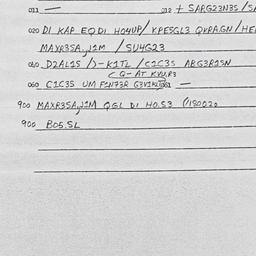 011 — 012 + SARG23N35 / SA
020 DI KAP EQDI HO4UP / KPESGL3 QKPA.GN / HE
MAXR35A, J1M / SU4G23
040 D2AL15 / )-K1TL / C1C3S ARG3R15N
C Q- AT KVU,R3
060 C1C3S UM F1N73R G3V1KL 061 —
900 MAXR35A, J1M QGL DI HO.53 (/150020
900 BO5.5L